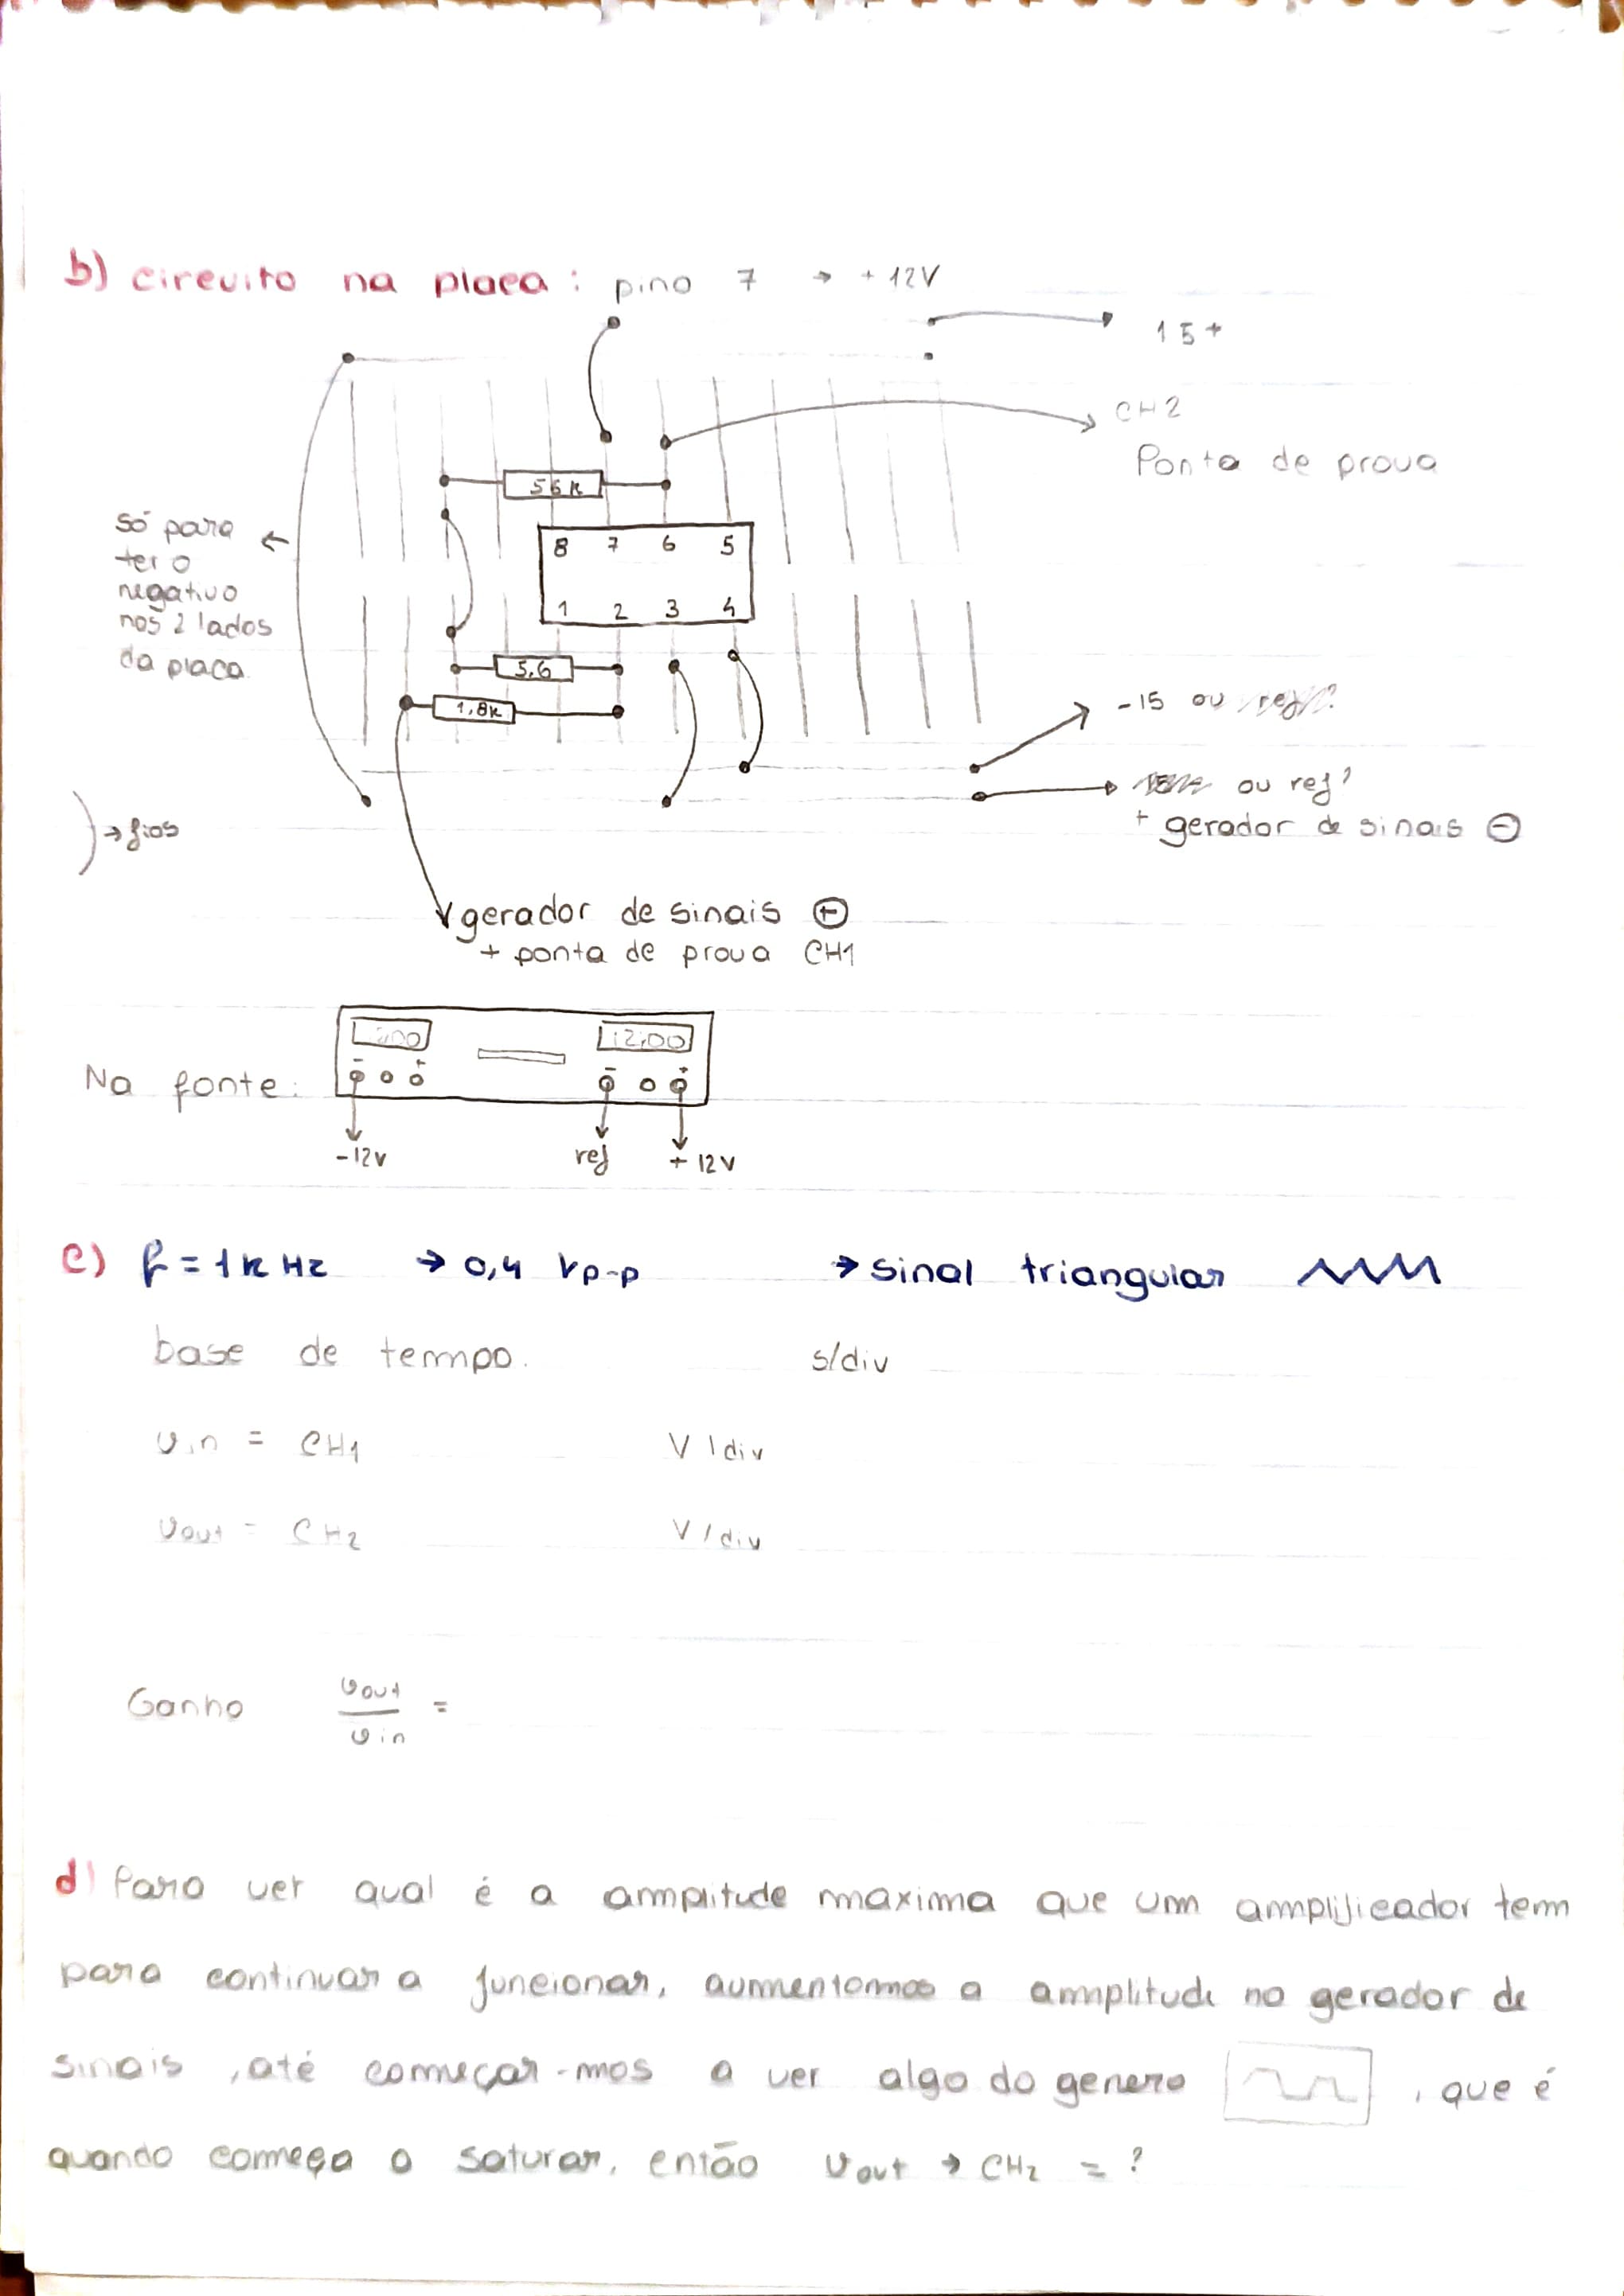 b) circuito na placa: pino 7 → +12V
15+
CH2
Ponta de prova
56k
só para
ter o
negativo
nos 2 lados
da placa
8 7 6 5
1 2 3 4
5,6
1,8k
-15 ou
ou ref?
+ gerador de sinais ⊖
→ fios
gerador de sinais ⊕
+ ponta de prova CH1
12,00
- + - +
Na fonte:
-12V ref +12V
c) f = 1k Hz → 0,4 Vp-p → sinal triangular
base de tempo. s/div
vin = CH1 V/div
vout = CH2 V/div
Ganho vout/vin =
d) Para ver qual é a amplitude maxima que um amplificador tem
para continuar a funcionar, aumentamos a amplitude no gerador de
sinais, até começar-mos a ver algo do genero , que é
quando começa a saturar, então vout → CH2 = ?